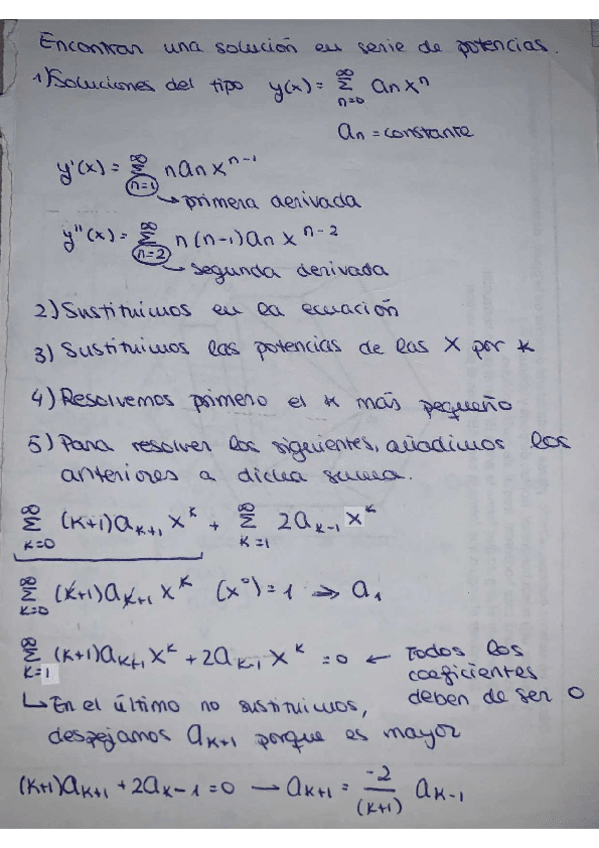 Encontrar una solución en serie de potencias.
1) Soluciones del tipo y(x) = ∑_{n=0}^{∞} an xⁿ
an = constante
y'(x) = ∑_{n=1}^{∞} n an x^{n-1}
→ primera derivada
y''(x) = ∑_{n=2}^{∞} n(n-1) an x^{n-2}
segunda derivada
2) Sustituimos en la ecuación
3) Sustituimos las potencias de las X por k
4) Resolvemos primero el k más pequeño
5) Para resolver los siguientes, añadimos los
anteriores a dicha suma.
∑_{k=0}^{∞} (k+1)a_{k+1} x^k + ∑_{k=1}^{∞} 2a_{k-1} x^k
∑_{k=0}^{∞} (k+1)a_{k+1} x^k (x⁰) = 1 ⇒ a₁
∑_{k=1}^{∞} (k+1)a_{k+1} x^k + 2a_{k-1} x^k = 0 ← Todos los
coeficientes
deben de ser 0
↳ En el último no sustituimos,
despejamos a_{k+1} porque es mayor
(k+1)a_{k+1} + 2a_{k-1} = 0 → a_{k+1} = -2/(k+1) a_{k-1}